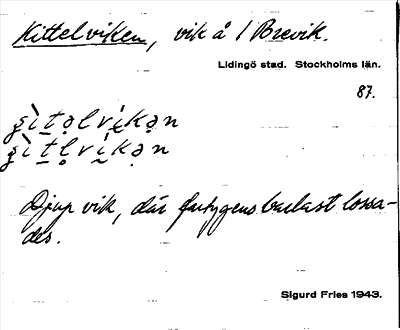 Kittelviken, vik å / Brevik.
Lidingö stad. Stockholms län.
87.
Djup vik, där fartygens barlast lossa-
des.
Sigurd Fries 1943.